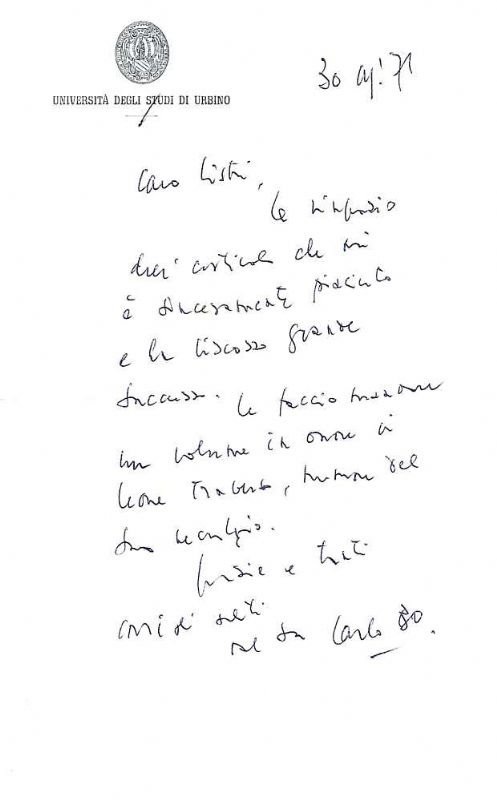 30 ag. 71
UNIVERSITÀ DEGLI STUDI DI URBINO
Caro Listri,
La ringrazio
dell'articolo che mi
è sinceramente piaciuto
e ha riscosso grande
successo. Le faccio mandare
un volume in onore di
Leone Traverso, tutore del
suo
Grazie e tanti
cordiali saluti
dal suo Carlo Bo.